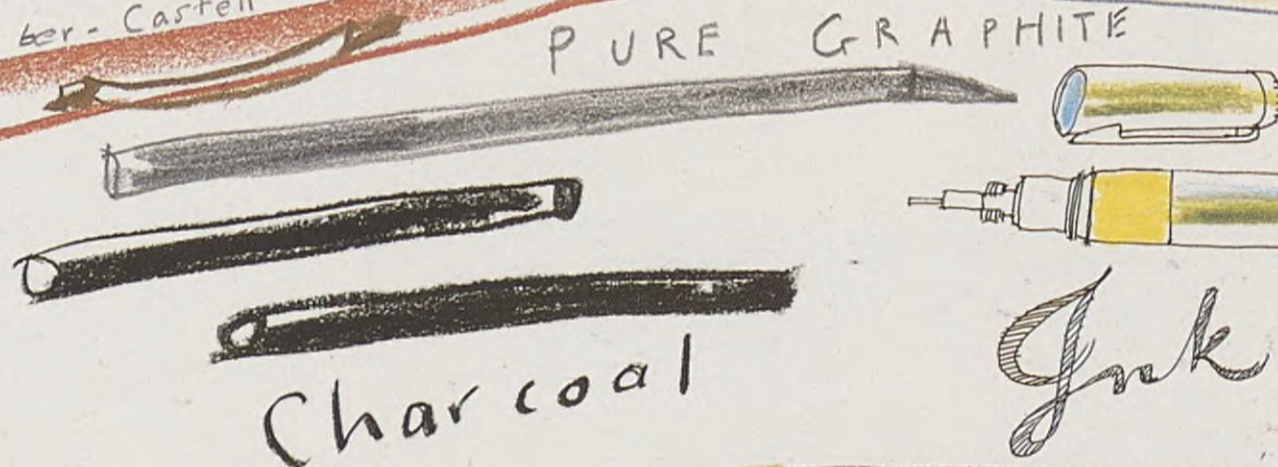 ber-Castell
PURE GRAPHITE
Charcoal
Ink